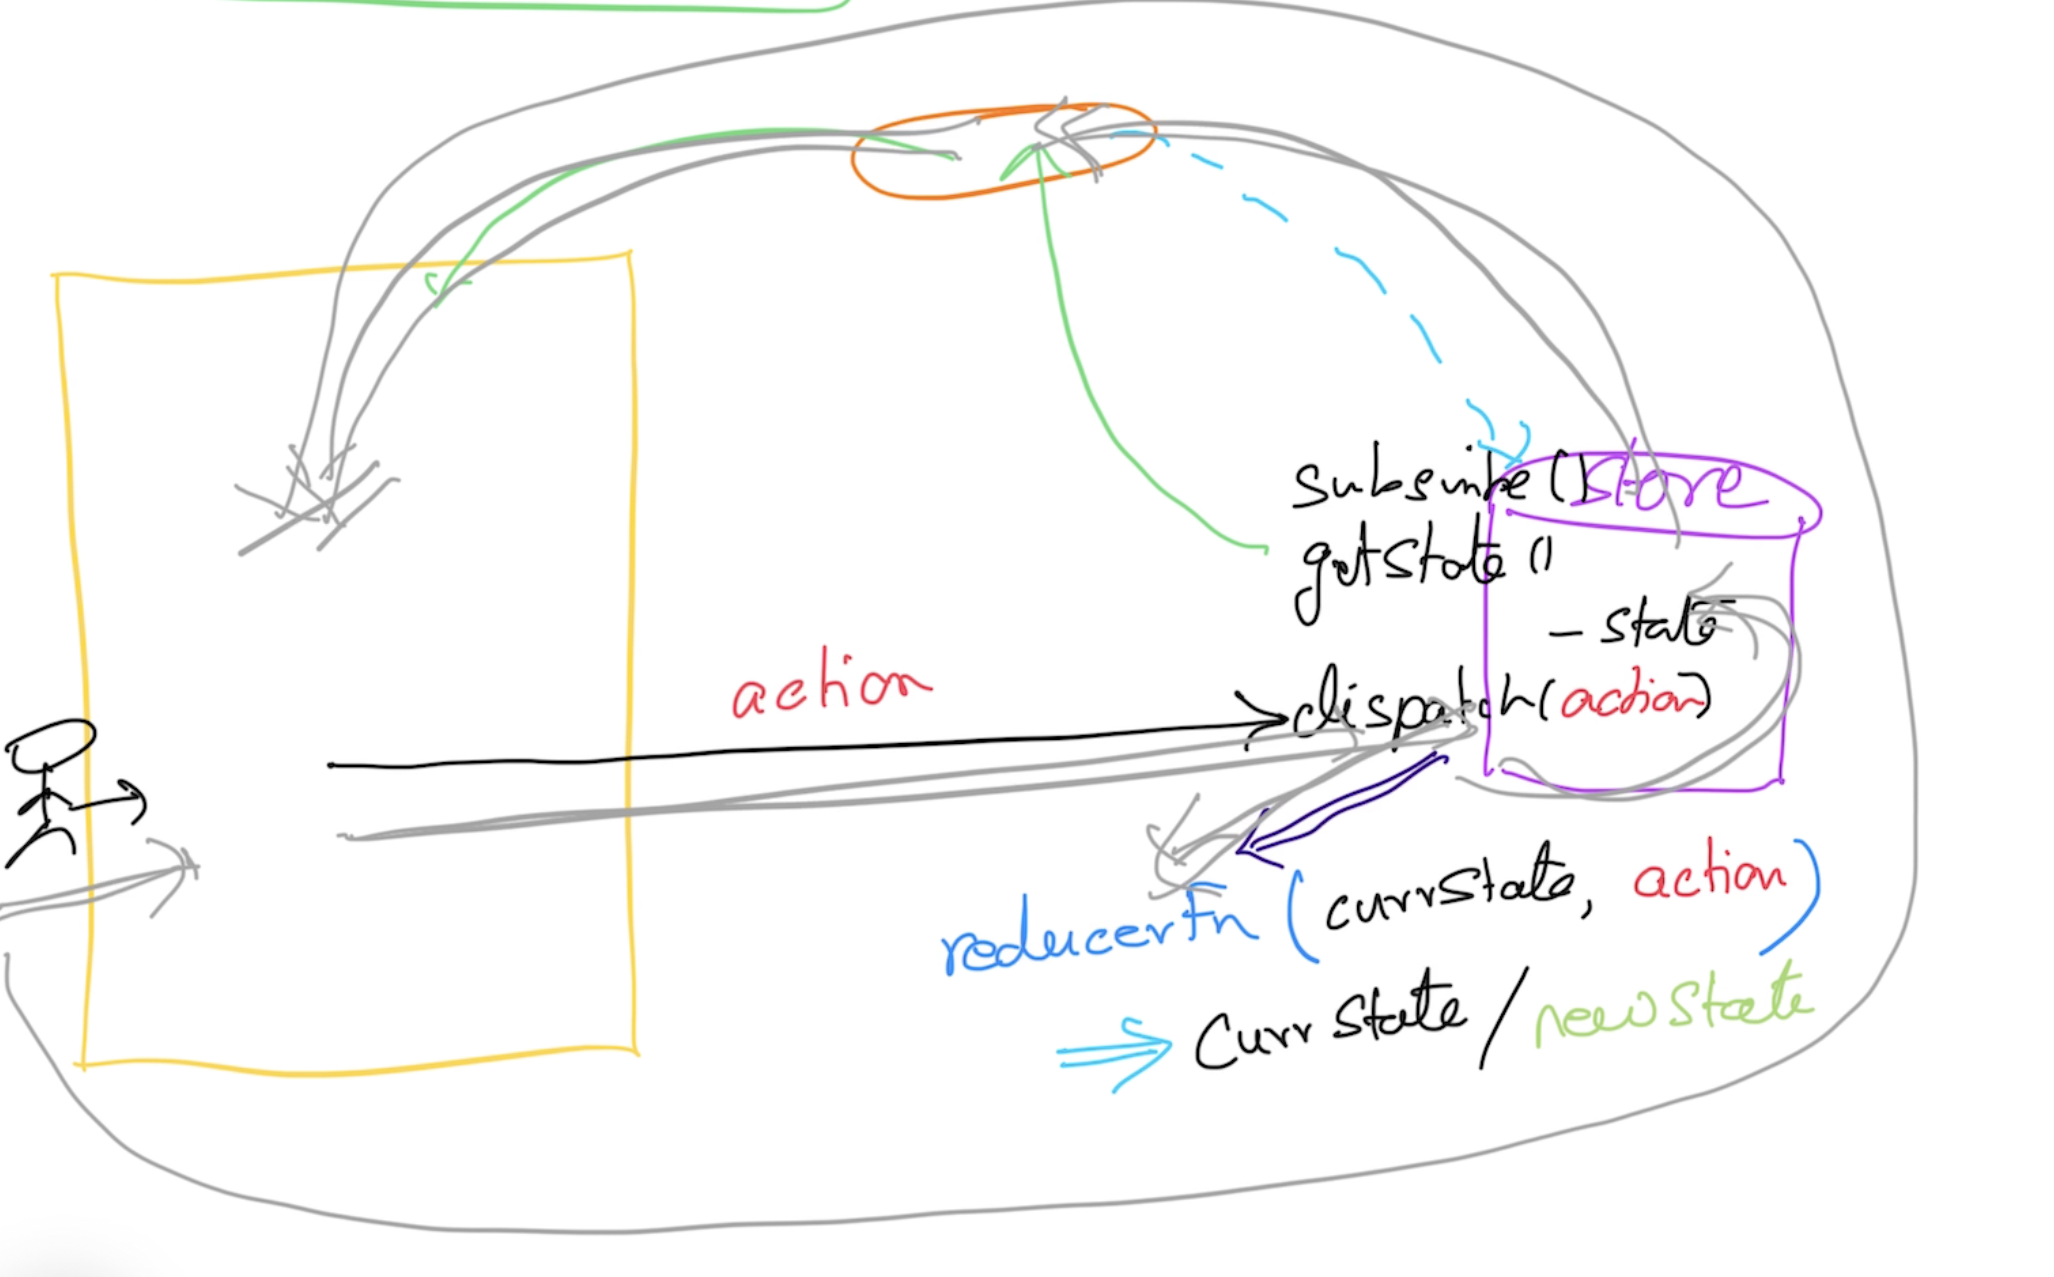 subscribe() Store
getState()
- state
action
dispatch(action)
reducerFn (currState, action)
Curr State / new State